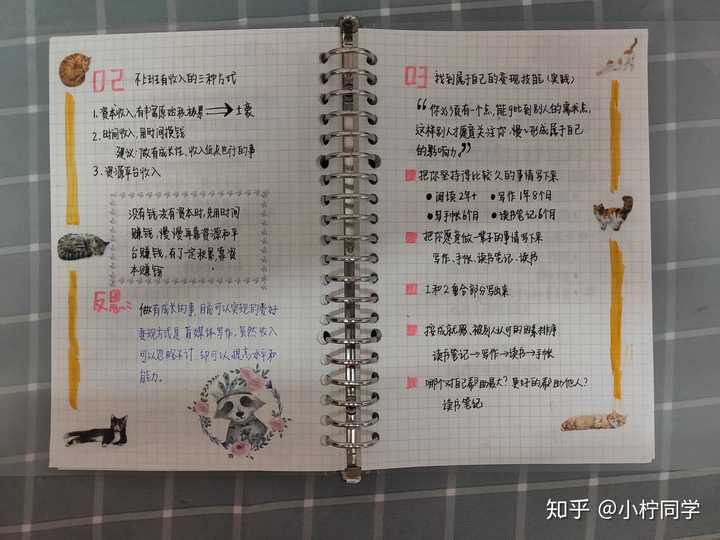 02 不上班有收入的三种方式
1. 资本收入,有丰富原始积极累 → 土豪
2. 时间收入,用时间换钱
建议:做有成长性、收入低点也行的事
3. 资源平台收入
没有钱没有资本时,先用时间
赚钱,慢慢再靠资源和平
台赚钱,有了一定积累,靠资
本赚钱
反思:
做有成长的事,目前可以实现的最好
变现方式是自媒体写作,虽然收入
可以忽略不计,却可以提高水平和
能力。
03 找到属于自己的变现技能(实践)
“你必须有一个点,能够比到别人的需求点,
这样别人才愿意关注你,慢慢形成属于自己
的影响力”
把你坚持得比较久的事情写下来
•阅读2年+ •写作1年8个月
•写手帐6个月 •读书笔记6个月
把你愿意做一辈子的事情写下来
写作、手帐、读书笔记、读书
1和2重合部分写出来
按成就感、被别人认可的因素排序
读书笔记→写作→读书→手帐
哪个对自己帮助最大?更好的帮助他人?
读书笔记
知乎 @小柠同学